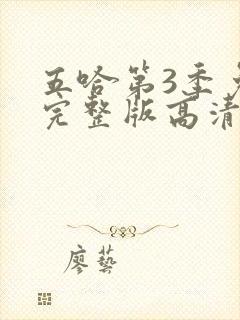 五哈第3季
完整版高清
廖藝